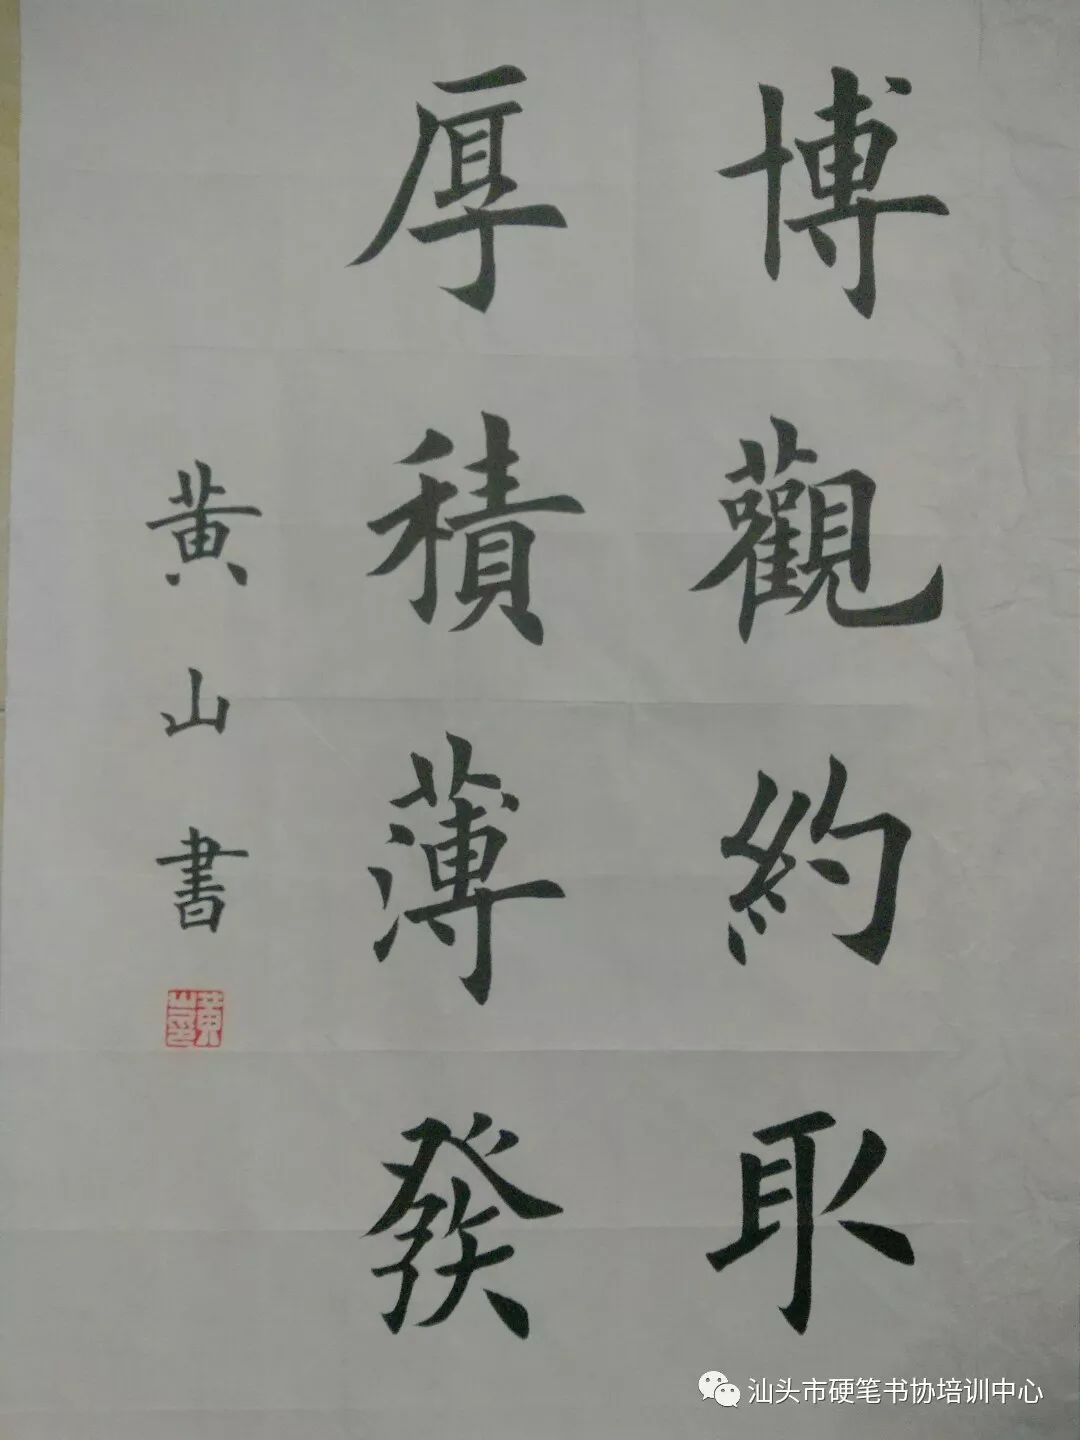 博觀約取
厚積薄發
黄山書
汕头市硬笔书协培训中心